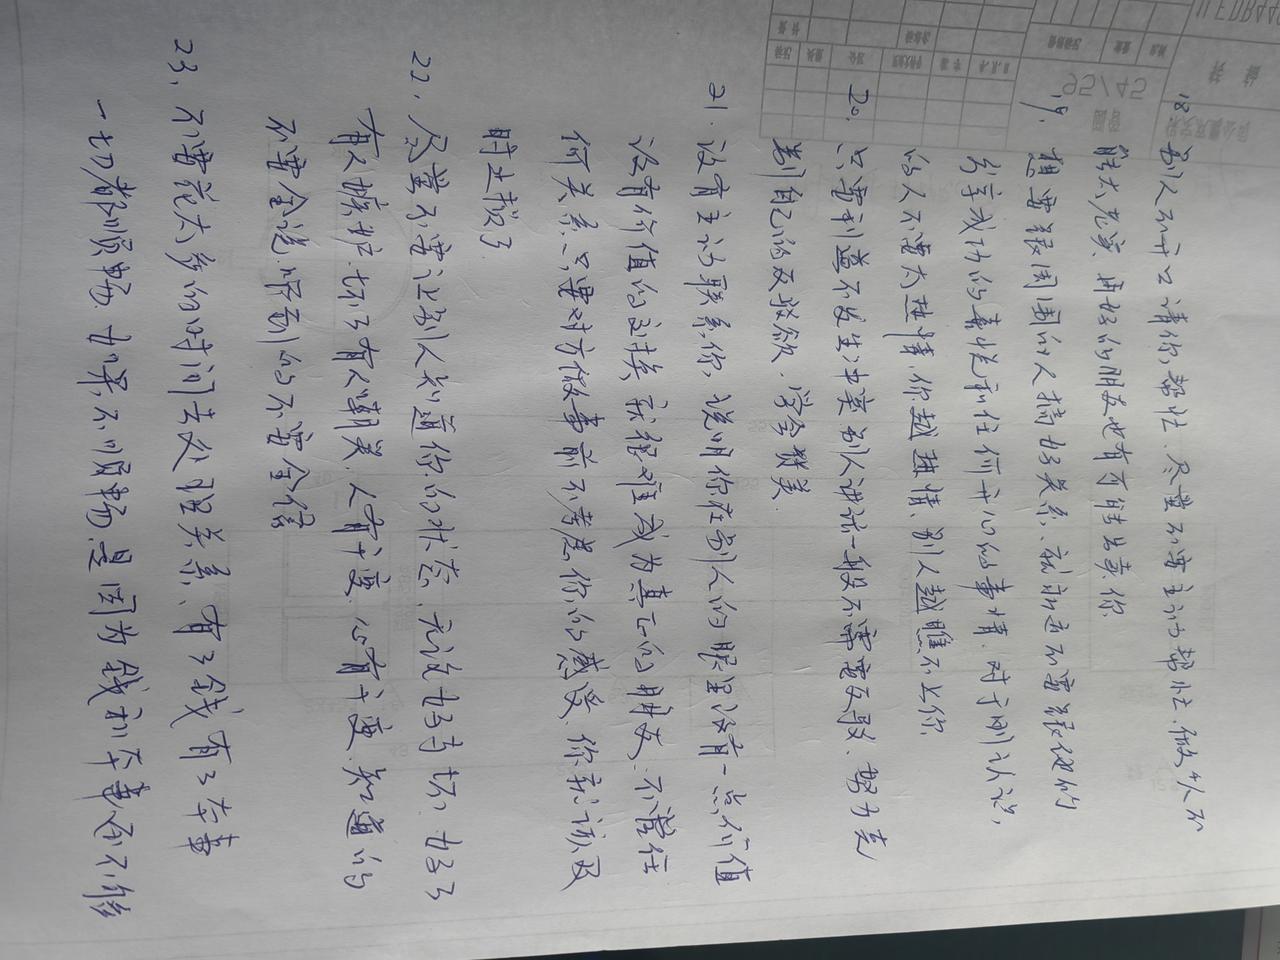 18 别人不开口请你帮忙.尽量不要主动帮忙.做人不
能太老实.再好的朋友也有可能出卖你
19. 想要跟周围的人搞好关系.就永远不要跟他们
分享成功的喜悦和任何开心的事情.对于刚认识,
的人不要太热情.你越热情 别人越瞧不上你
20. 只要利益不发生冲突别人讲话一般不需要反驳.努力克
制自己的反驳欲.学会赞美
21. 没有主动联系你,说明你在别人的眼里没有一点价值
没有价值的交换 就很难成为真正的朋友.不管任
何关系 只要对方做事前不考虑你的感受,你就该及
时止损了
22、尽量不要让别人知道你的状态.无论好与坏、好了
有人嫉妒.坏了有人嘲笑.人有千面.心有千变.知道的
不要全说.听到的不要全信
23、不要花太多的时间去处理关系、有了钱有了本事
一切都顺畅.如果不顺畅.是因为钱和本事还不够
95/45